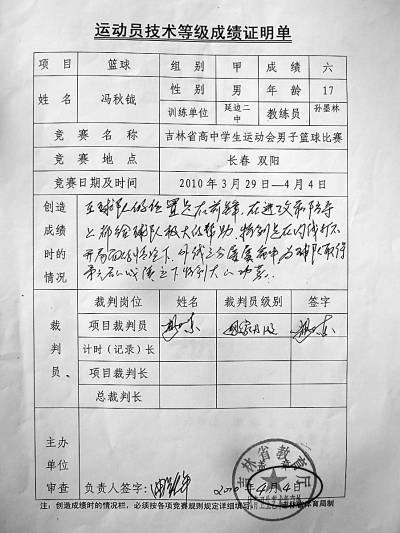 运动员技术等级成绩证明单
项目 篮球 组别 甲 成绩 六
姓名 冯秋钺 性别 男 年龄 17
训练单位 延边二中 教练员 孙墨林
竞赛名称 吉林省高中学生运动会男子篮球比赛
竞赛地点 长春 双阳
竞赛日期及时间 2010年3月29日—4月4日
创造成绩时的情况
在球队的位置是在前锋，在进攻和防守
上都给球队极大的帮助，特别是在内线打不
开局面的情况下，外线三分屡屡命中为球队取得
裁判员
裁判岗位 姓名 裁判员级别 签字
项目裁判员 国家
计时（记录）长
项目裁判长
总裁判长
主办单位审查
负责人签字：
2010年4月4日
吉林省教育厅
注：创造成绩时的情况栏，必须按各项竞赛规则规定详细填写
吉林省教育局制